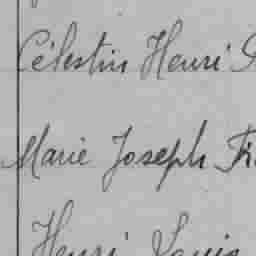 Célestin Henri
Marie Joseph
Henri Louis